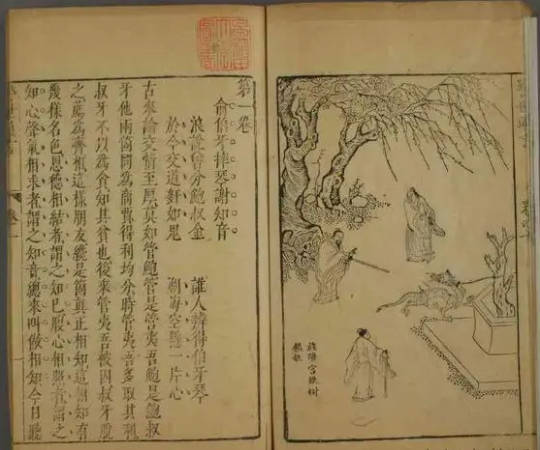 第一卷
俞伯牙摔琴謝知音
浪說曾分鮑叔金　誰人辨得伯牙琴
於今交道奸如鬼　湖海空懸一片心
古來論交情至厚莫如管鮑管是管夷吾鮑是鮑叔
牙他兩箇同爲商賈得利均分時管夷吾多取其利
叔牙不以爲貪知其貧也後來管夷吾被囚叔牙脫
之薦爲齊相這樣朋友纔是箇真正相知這相知有
幾樣名色恩德相結者謂之知己腹心相照者謂之
知心聲氣相求者謂之知音總來叫做相知今日聽